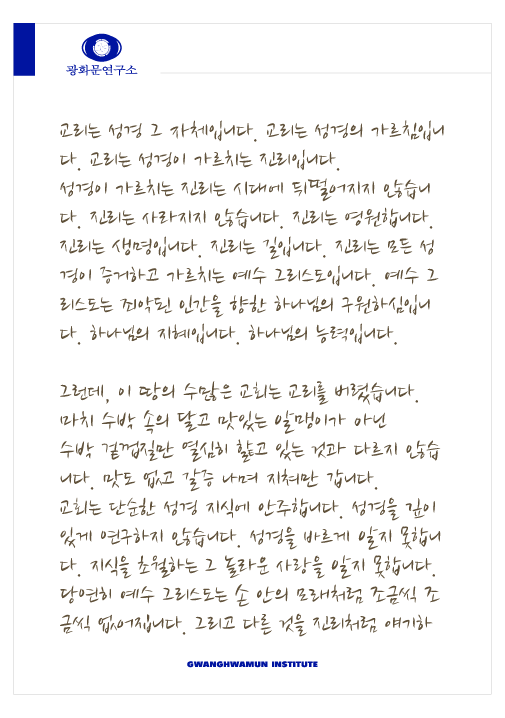 광화문연구소
교리는 성경 그 자체입니다. 교리는 성경의 가르침입니
다. 교리는 성경이 가르치는 진리입니다.
성경이 가르치는 진리는 시대에 뒤떨어지지 않습니
다. 진리는 사라지지 않습니다. 진리는 영원합니다.
진리는 생명입니다. 진리는 길입니다. 진리는 모든 성
경이 증거하고 가르치는 예수 그리스도입니다. 예수 그
리스도는 죄악된 인간을 향한 하나님의 구원하심입니
다. 하나님의 지혜입니다. 하나님의 능력입니다.
그런데, 이 땅의 수많은 교회는 교리를 버렸습니다.
마치 수박 속의 달고 맛있는 알맹이가 아닌
수박 겉껍질만 열심히 핥고 있는 것과 다르지 않습
니다. 맛도 없고 갈증 나며 지쳐만 갑니다.
교회는 단순한 성경 지식에 안주합니다. 성경을 깊이
있게 연구하지 않습니다. 성경을 바르게 알지 못합니
다. 지식을 초월하는 그 놀라운 사랑을 알지 못합니다.
당연히 예수 그리스도는 손 안의 모래처럼 조금씩 조
금씩 없어집니다. 그리고 다른 것을 진리처럼 얘기하
GWANGHWAMUN INSTITUTE